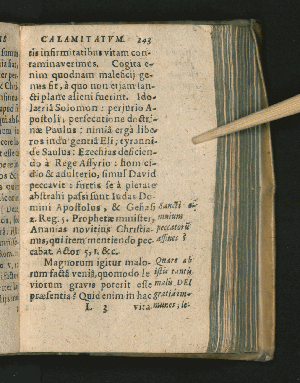 CALAMITATVM. 243
tis infirmitatibus vitam con-
taminaverimes. Cogita e-
nim quodnam maleficij ge-
nus sit, à quo non etjam san-
cti planè alieni fuerint. Ido-
latriâ Solomon: perjurio A-
postoli: persecutione doctri-
næ Paulus: nimiâ ergà libe-
ros indulgentiâ Eli; tyranni-
de Saulus: Ezechias deficien-
do à Rege Assyrio: homici-
dio & adulterio, simul David
peccavit: furtis se à pietate
abstrahi passi sunt Judas Do-
mini Apostolus, & Gehasi
2. Reg. 5. Prophetæ minister,
Ananias novitius Christia-
nus, qui item mentiendo pec-
cabat. Actor 5, 1. &c.
Sancti
omnium
peccatorũ
affines
Magnorum igitur malo-
rum factâ veniâ, quomodo le
viorum gravis poterit esse
præsentia? Quid enim in hac
L 3 vita
Quare ab
istis tantũ
malis DEI
gratiâ im-
munes;